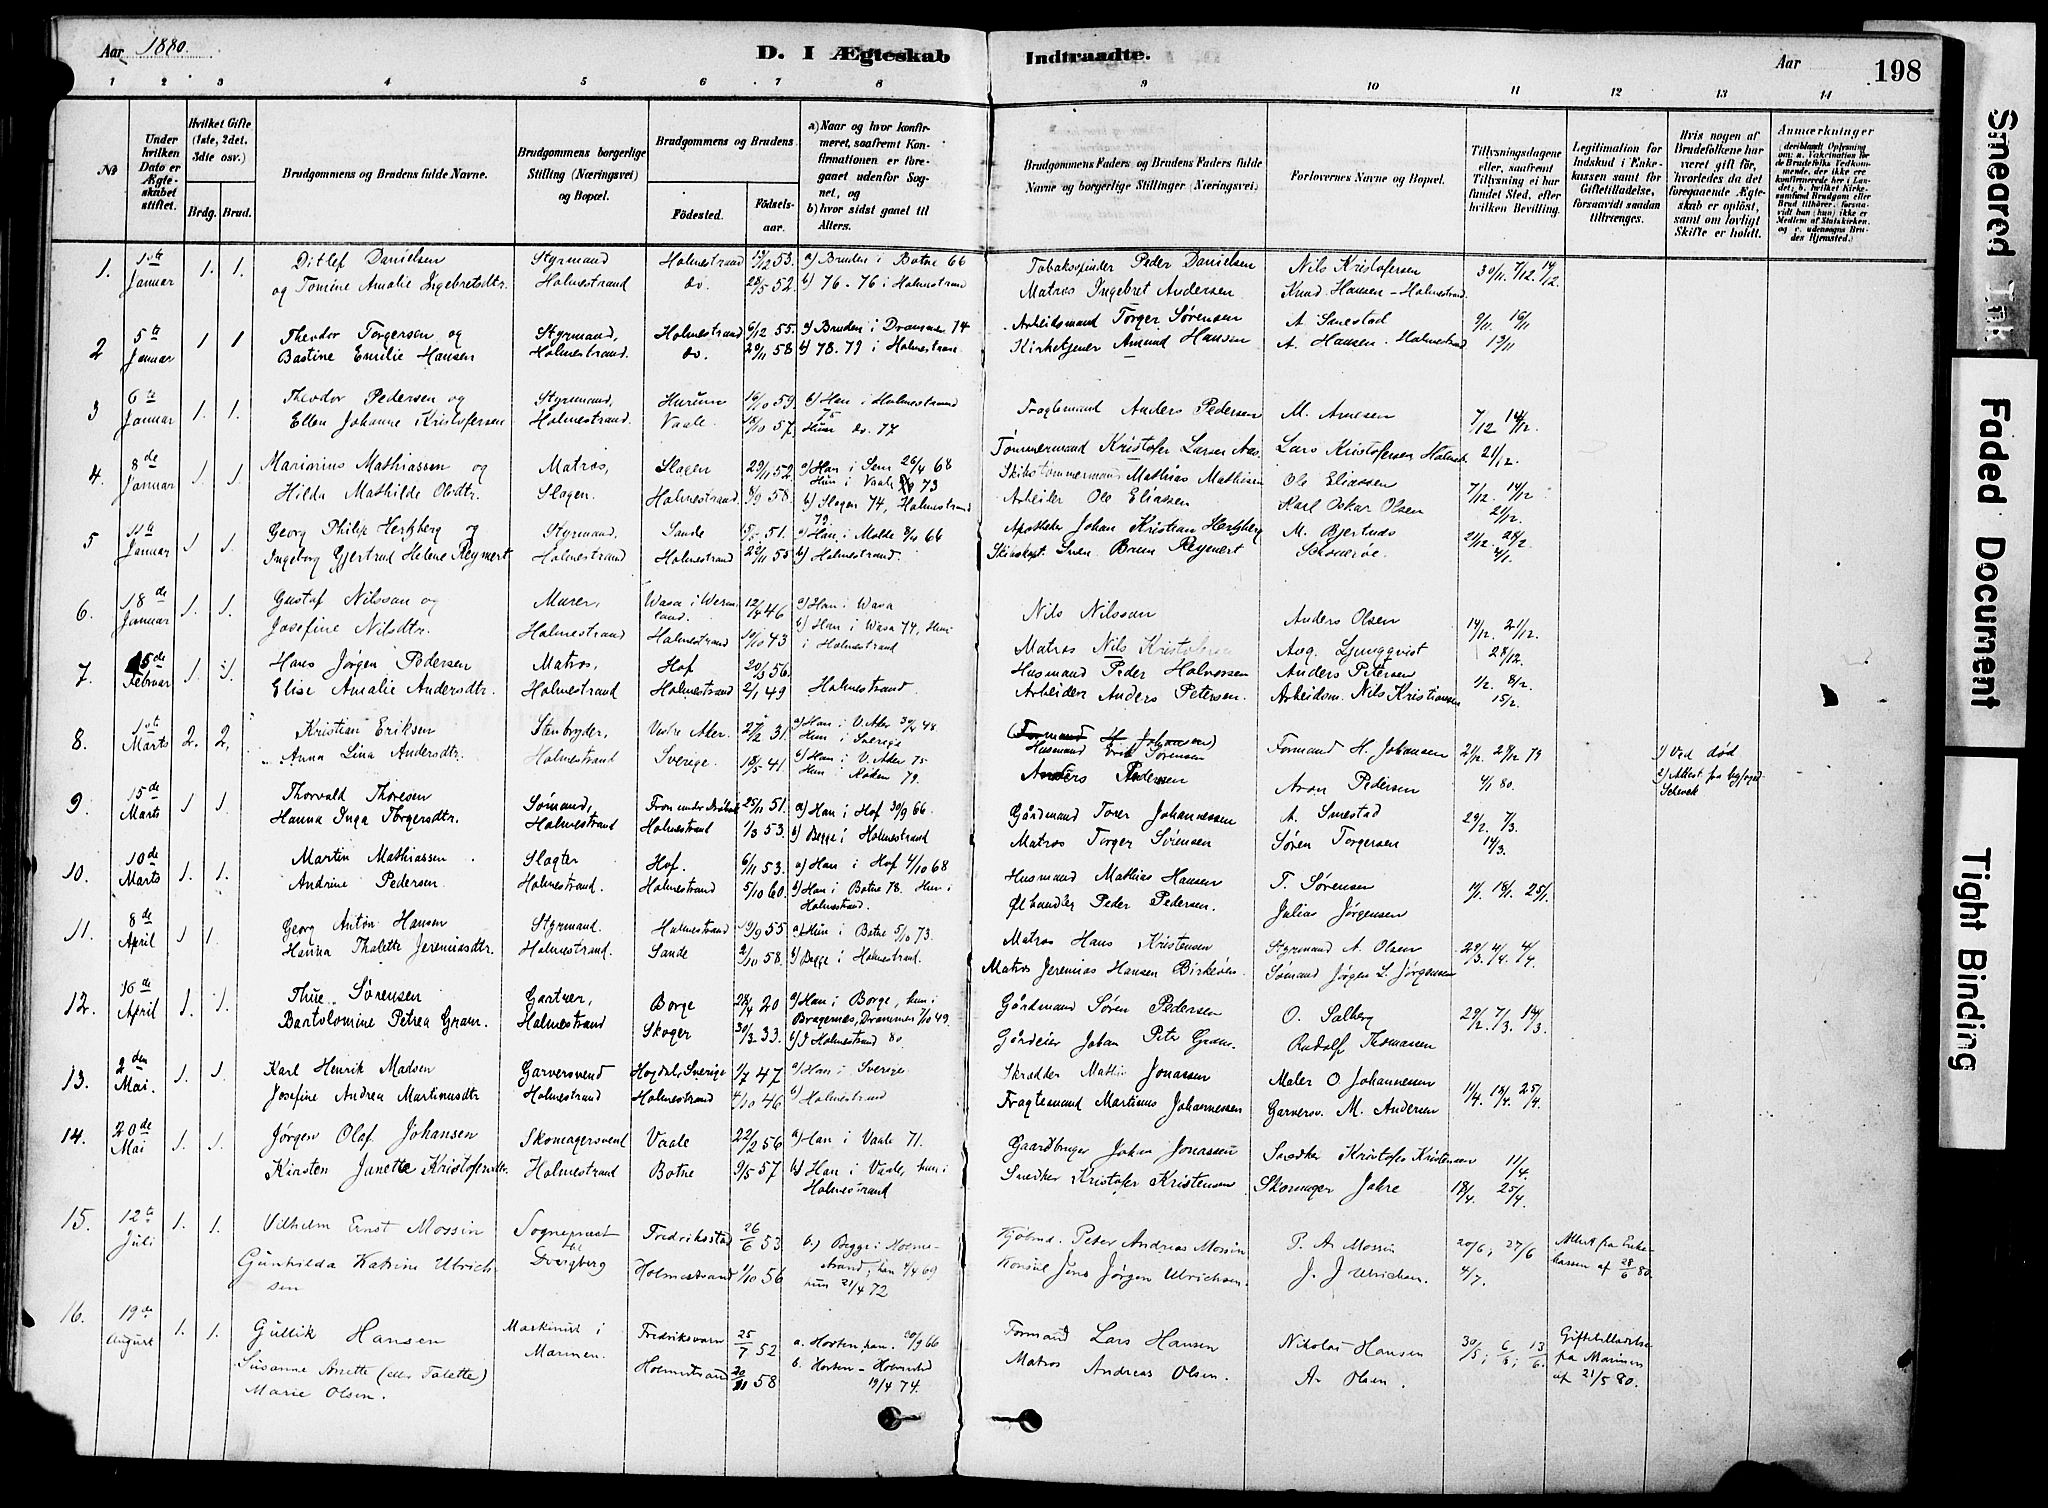 Aar 1880.
D. I Ægteskab Indtraadte.
Aar
198
1 2 3 4 5 6 7 8 9 10 11 12 13 14
No
Under hvilken Dato er Ægteskabet stiftet.
Hvilket Gifte (1ste, 2det, 3die osv.)
Brdg. Brud.
Brudgommens og Brudens fulde Navne.
Brudgommens borgerlige Stilling (Næringsvei) og Bopæl.
Brudgommens og Brudens
Fødested. Fødselsaar.
a) Naar og hvor konfirmeret, saafremt Konfirmationen er foregaaet udenfor Sognet, og
b) hvor sidst gaaet til Alters.
Brudgommens Faders og Brudens Faders fulde Navne og borgerlige Stillinger (Næringsvei).
Forlovernes Navne og Bopæl.
Tillysningsdagene eller, saafremt Tillysning ei har fundet Sted, efter hvilken Bevilling.
Legitimation for Indskud i Enkekassen samt for Giftetilladelse, forsaavidt saadan tiltrænges.
Hvis nogen af Brudefolkene har været gift før, hvorledes da det foregaaende Ægteskab er opløst, samt om lovligt Skifte er holdt.
Anmærkninger
1. 1ste Januar 1. 1. Ditlef Danielsen Styrmand Holmestrand 53. a) Bruden i Botne 66 Tobakspinder Peder Danielsen Nils Kristofersen 30/11. 7/12. 14/12
og Tomine Amalie Ingebretsdtr. Holmestrand do. 28/5 52. b) 76-76 i Holmestrand Matros Ingebret Andersen Knud Hansen - Holmestrand
2 5te Januar 1 1 Theodor Torgersen og Styrmand, Holmestrand 6/12 55. a) Bruden i Drammen 74 Arbeidsmand Torger Sørensen A. Smestad 9/11 16/11
Bastine Emilie Hansen Holmestrand. do. 29/11 58 b) 78.79 i Holmestrand Kirketjener Amund Hansen A. Hansen. Holmestrand
3 6te Januar 1. 1. Theodor Pedersen og Styrmand, Hurum 16/10 59. b) Han i Holmestrand 75 Fragtemand Anders Pedersen M. Arnesen 7/12 14/12.
Ellen Johanne Kristofersen Holmestrand. Vaale. 18/10 57. Hun do. 77 Tømmermand Kristofer Larsen Lars Kristofersen 21/12.
4. 8de Januar 1. 1. Marinius Mathiassen og Matros, Slagen 29/11 52. a) Han i Sem 26/4 68 Skibstømmermand Mathias Mathisen Ole Eliassen 7/12. 14/12
Hilda Mathilde Olsdtr. Slagen. Holmestrand 8/9 58. Hun i Vaale 73 b) Slagen 74, Holmestrand 79 Arbeider Ole Eliassen Karl Oskar Olsen 21/12.
5 11te Januar 1 1. Georg Philip Herzberg og Styrmand, Sande 51. a) Han i Molde 66 Apotheker Johan Kristian Herzberg M. Bjertnæs 21/12. 28/12.
Ingeborg Gjertrud Helene Reymert Holmestrand Holmestrand 22/11 55 b) Holmestrand. Sven Bruun Reymert 4/1.
6. 18de Januar 1. 1. Gustaf Nilsson og Murer, Wasa i Wermland. 12/4 46 a) Han i Wasa Nils Nilsson Anders Olsen 14/12. 21/12.
Josefine Nilsdtr. Holmestrand Holmestrand 10/10 43 b) Han i Wasa 74, Hun i Holmestrand Matros Nils Kristofersen Aug. Ljungqvist 28/12.
7. 5de Februar 1. 1. Hans Jørgen Pedersen Matros, Hof 20/3 56. Husmand Peder Halvorsen Anders Petersen 1/2. 8/2.
Elise Amalie Andersdtr. Holmestrand Holmestrand 2/1 49 Holmestrand. Arbeider Anders Petersen. Arbeidsm. Nils Kristiansen 15/2.
8. 1ste Marts 2. 2. Kristian Eriksen Stenbryder, Vestre Aker. 27/2 31. a) Han i V. Aker 48 Hun i Sverige Husmand Erik Sørensen Formand H. Johansen 79 1) Ved død
Anna Lina Andersdtr. Holmestrand Sverige. 18/5 41. b) Han i V. Aker 75 Hun i Røken 79. Anders Pedersen Aron Pedersen 4/1 80. 2) Attest fra
9. 15de Marts 1. 1. Thorvald Thoresen Sømand, 25/11 51. a) Han i Hof 30/9 66. Gårdmand Torer Johannessen A. Smestad 29/2. 7/3.
Hanna Inga Torgersdtr. Holmestrand Holmestrand 1/3 53. b) Begge i Holmestrand Matros Torger Sørensen Søren Torgersen 14/3.
10. 10de Marts 1. 1. Martin Mathiassen Slagter Hof. 6/11 53. a) Han i Hof 4/10 68 Husmand Mathias Hansen T. Sørensen 11/1. 18/1. 25/1.
Andrine Pedersen Holmestrand. Holmestrand 5/10 60. b) Han i Botne 78. Hun i Holmestrand. Ølhandler Peder Pedersen. Julius Jørgensen
11. 8de April 1 1. Georg Anton Hansen Styrmand. Holmestrand 19/9 55 a) Hun i Botne 5/10 73. Matros Hans Kristensen Styrmand A. Olsen
Hanna Thalette Jeremiasdtr. Holmestrand. Sande 2/10 58. b) Begge i Holmestrand. Matros Jeremias Hansen Sømand Jørgen L. Jørgensen
12. 16de April 1. 1. Thue Sørensen Gartner, Borge 28/4 20 a) Han i Borge, hun i Bragernes, Drammen 7/10 49. Gårdmand Søren Pedersen O. Salberg 29/2. 7/3. 14/3.
Bartolomine Petrea Gram. Holmestrand Skoger 30/3 33. b) I Holmestrand 80. Gårdeier Johan Peter Gram. Rudolf Thomassen
13. 2den Mai. 1. 1. Karl Henrik Madsen Garversvend Hogdal, Sverige 1/7 47 a) Han i Sverige Skrædder Jonassen Maler O. Johannesen 11/4. 18/4. 25/4.
Josefine Andrea Martinusdtr Holmestrand Holmestrand 4/10 46 b) Holmestrand Fragtemand Martinus Johannessen Garversv. M. Andersen
14. 20de Mai 1. 1. Jørgen Olaf Johansen Skomagersvend Vaale 22/2 56 a) Han i Vaale 71. Gaardbruger Johan Jonassen Snedker Kristofer Kristensen 11/4.
Kirsten Janette Kristofersdtr. Holmestrand Botne 9/5 57 b) Han i Vaale, hun i Holmestrand Snedker Kristofer Kristensen Skomager Jahre 18/4. 25/4.
15. 12te Juli 1. 1. Vilhelm Ernst Mossin Sognepræst til Dverberg Fredriksstad 26/6 53 b.) Begge i Holmestrand, han 69 hun 21/4 72 Kjøbmd. Peter Andreas Mossin P. A. Mossin 20/6; 27/6 4/7. Attest fra Enkekassen af 28/6 80.
Gunhilda Katrine Ulrichsen Holmestrand 1/10 56 Konsul Jens Jørgen Ulrichsen. J. J Ulrichsen.
16. 19de August 1. 1. Gullik Hansen Maskinist i Marinen. Fredriksværn 25/7 52 a. Horten, han. 66 Formand Lars Hansen Nikolai Hansen 30/5; 6/6; 13/6. Giftetilladelse fra Marinen af 21/5 80.
Susanne Anette (eller Talette) Marie Olsen. Holmestrand 58 b. Horten - Holmestrd 19/4 74. Matros Andreas Olsen. A. Olsen.
Smeared Ink
Faded Document
Tight Binding